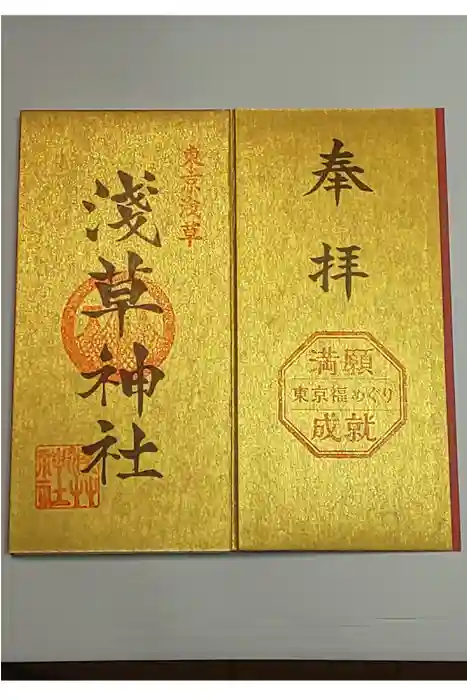 奉拝
満願
東京福めぐり
成就
東京浅草
淺草神社